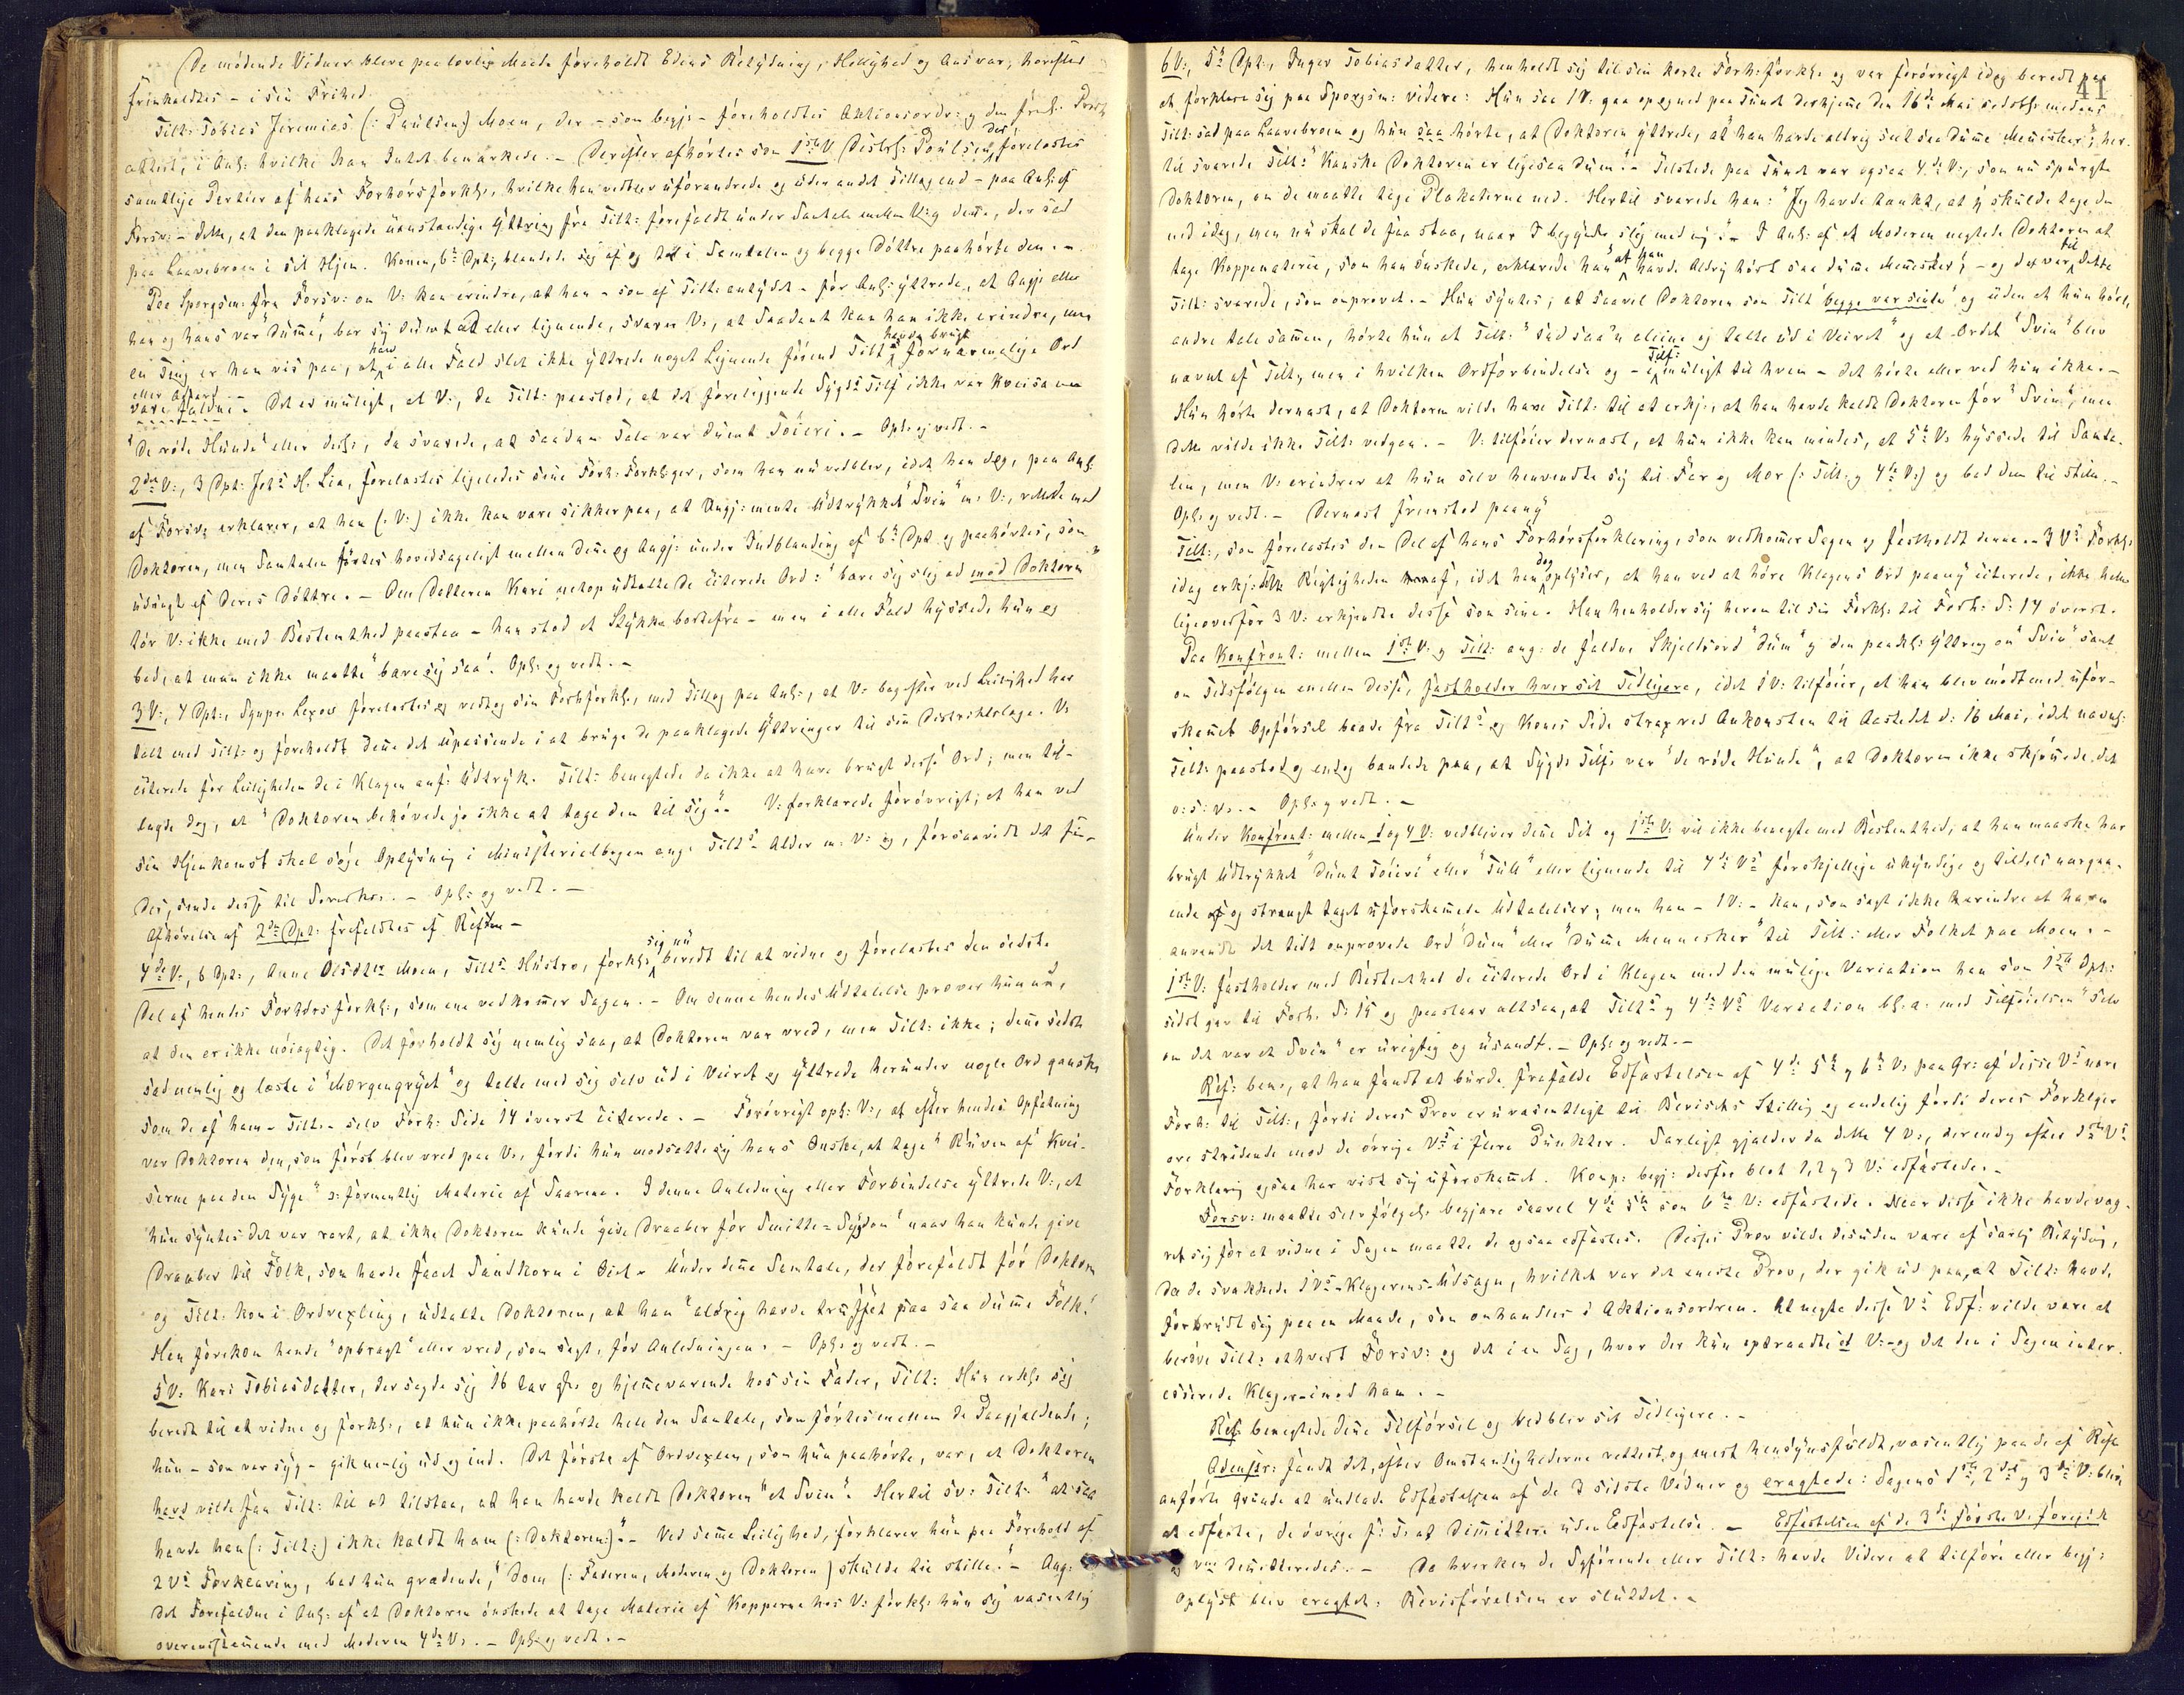 De mødende Vidner bleve paa lovlig Maade foreholdt Edens Betydning, Hellighed og Ansvar, hvorefter
frinkaldtes – i sin Frihed.
Tilt: Tobias Jeremias (: Paulsen) Moen, der – som begj: – foreholdtes Aktionsordr: og den freml. Præste
attest, i Anl: hvilke han Intet bemærkede. – Derefter afhørtes som 1ste V. Distrl: Poulsen, der forelæstes
samtlige Partier af hans Forhørsforkl:, hvilke han vedblev uforandrede og uden andet Tillæg end – paa Anl: af
Forsv: – dette, at den paaklagede uanstændige Yttring fra Tilt: forefaldt under Samtale mellem V: og denne, der sad
paa Laavebroen i sit Hjem. Konen, 6te Dpt:, blandede sig af og til i Samtalen og begge Døttre paahørte den. –
Paa Spørgsm: fra Forsv: om V: kan erindre, at han – som af Tilt: antydet – før Anl: yttrede, at Angj: eller
han og hans var "dumme", bar sig dumt ad eller lignende, svarer V:, at Saadant kan han ikke erindre, men
en Ting er han vis paa, at han i alle Fald slet ikke yttrede noget Lignende førend Tilts havde brugt fornærmelige Ord
vare faldne. Det er muligt, at V:, da Tilt: paastod, at det foreliggende Sygds Tilf ikke var Kveisa men
"De røde Hunde" eller desl:, da svarede, at saadan Tale var dumt Tøieri. – Opl: og vedt. –
2det V:, 3 Dpt: Johs H. Lia, forelæstes ligeledes sine Forh: Forklger, som han nu vedblev, idet han dog, paa Anl:
af Forsv: erklærer, at han (: V:) ikke kan være sikker paa, at Angj: mente Udtrykket "Svin" m: V:, rettede mod
Doktoren, men Samtalen førtes hovedsageligt mellem denne og Angj: under Indblanding af 6te Dpt og paahørtes, som
udsagt af deres Døttre. – Om Datteren Kari netop udtalte de citerede Ord: "bære sig slig ad mod Doktoren"
tør V: ikke med Bestemthed paastaa – han stod et Stykke bortefra – men i alle Fald hyssede hun og
bad, at man ikke maatte "bære sig saa". Opl: og vedt. –
3 V:, 7 Dpt:, Syver Lexow forelæstes og vedtog sin Forhforkl:, med Tillæg paa Anl:, at V: bagefter ved Leilighed har
talt med Tilt: og foreholdt denne det Upassende i at bruge de paaklagede Yttringer til sin Distriktslæge. V:
citerede for Leiligheden de i Klagen anf: Udtryk. Tilt: benegtede da ikke at have brugt disse Ord; men til-
lagde dog, at "Doktoren behøvede jo ikke at tage dem til sig". – V: forklarede forøvrigt, at han ved
sin Hjemkomst skal søge Oplysning i Ministerialbogen ang: Tilts Alder m: V: og, forsaavidt det fin-
des, sende disse til Sorenskr. – Opl: og vedt. –
Afhørelse af 2den Dpt: frafaldtes af Reften –
4de V:, 6 Dpt:, Anne Olsdtr Moen, Tilts Hustro, forkl: sig nu beredt til at vidne og forelæstes den sidste
Del af hendes Forhørsforkl:, som ene vedkommer Sagen. – Om denne hendes Udtalelse prøver hun nu,
at den er ikke nøiagtig. Det forholdt sig nemlig saa, at Doktoren var vred, men Tilt: ikke; denne sidste
sad nemlig og læste i "Morgengryet" og talte med sig selv ud i Veiret og yttrede herunder nogle Ord ganske
som de af ham – Tilt: – selv Forh: Side 14 øverst citerede. – Forøvrigt opl: V:, at efter hendes Opfatning
var Doktoren den, som først blev vred paa V:, fordi hun modsatte sig hans Ønske, at tage "Ruven af Kvei-
serne paa den Syge" ɔ: formentlig Materie af Saarene. I denne Anledning eller Forbindelse yttrede V:, at
hun syntes det var rart, at ikke Doktoren kunde "give Draaber for Smitte-Sygdom" naar han kunde give
Draaber til Folk, som havde faaet Sandkorn i Øiet. – Under denne Samtale, der forefaldt før Doktoren
og Tilt: kom i Ordvexling, udtalte Doktoren, at han "aldrig havde truffet paa saa dumme Folk".
Han forekom hende "opbragt" eller vred, som sagt, før Anledningen. – Opl: og vedt. –
5 V: Kari Tobiasdatter, der sagde sig 16 Aar gl: og hjemmeværende hos sin Fader, Tilt: Hun erkl: sig
beredt til at vidne og forkl:, at hun ikke paahørte hele den Samtale, som førtes mellem de Paagjældende;
hun – som var syg – gik nemlig ud og ind. Det første af Ordvexlen, som hun paahørte, var, at Doktoren
havd vilde faa Tilt: til at tilstaa, at han havde kaldt Doktoren "et Svin". Hertil sv: Tilt: "at saa
havde han (: Tilt:) ikke kaldt ham (: Doktoren:)". – Ved denne Leilighed, forklarer hun paa Forehold af
2 Vs Forklaring, bad hun grædende, "Dem (: Faderen, Moderen og Doktoren) skulde tie stille." – Ang:
det Forefaldne i Anl: af at Doktoren ønskede at tage Materie af Kopperne hos V: forkl: hun sig væsentlig
overensstemmende med Moderen 4de V:. – Opl: og vedt. –
41
6 V:, 5te Dpt:, Inger Tobiasdatter, henholdt sig til sin korte Forh: forkl: og var forøvrigt idag beredt paa
at forklare sig paa Spørgsm: videre: Hun saa 1 V: gaa op og ned paa Tunet derhjemme den 16de Mai sidstl: medens
Tilt: sad paa Laavebroen og hun saa hørte, at Doktoren yttrede, at "han havde aldrig seet saa dumme Mennisker"; her-
til svarede Tilt: "Kanske Doktoren er ligesaa dum". – Tilstede paa Tunet var ogsaa 4de V:, som nu spurgte
Doktoren, om de maatte tage Plakaterne ned. Hertil svarede han: "Jeg havde tænkt, at I skulde tage dem
ned idag, men nu skal de faa staa, naar I begynder slig med mig". – I Anl: af at Moderen negtede Doktoren at
tage Koppematerie, som han ønskede, erklærede han "at han havde aldrig hørt saa dumme Mennesker"; – og det var til dette
Tilt: svarede, som omprovet. – Hun syntes, at saavel Doktoren som Tilt "begge var sinte" og uden at hun hørte
andre tale sammen, hørte hun at Tilt: "sad saa'n aleine og talte ud i Veiret" og at Ordet "Svin" blev
nævnt af Tilt:, men i hvilken Ordforbindelse og – muligt til hvem – det hørte eller ved hun ikke. –
Hun hørte dernæst, at Doktoren vilde have Tilt: til at erkj:, at han havde kaldt Doktoren for "Svin", men
dette vilde ikke Tilt: vedgaa. – V: tilføier dernæst, at hun ikke kan mindes, at 5te V: hyssede til Samta-
len, men V: erindrer at hun selv henvendte sig til Far og Mor (: Tilt: og 4de V:) og bad dem tie stille. –
Opl: og vedt. – Dernæst fremstod paany
Tilt:, som forelæstes den Del af hans Forhørsforklaring, som vedkommer Sagen og fastholdt denne. – 3 Vs Forkl:
idag erkj: Rigtigheden af, idet han dog oplyser, at han ved at høre Klagens Ord paany citerede, ikke heller
ligeoverfor 3 V: erkjendte disse som sine. Han henholder sig herom til sin Forkl: til Forh: S: 14 øverst.
Paa Konfront: mellem 1ste V: og Tilt: ang: de faldne Skjeldsord "dum" og den paakl: Yttring om "Svin" samt
om Tidsfølgen imellem disse, fastholder hver sit Tidligere, idet 1 V: tilføier, at han blev mødt med ufor-
skammet Opførsel baade fra Tilts og Kones Side strax ved Ankomsten til Aastedet d: 16 Mai, idet navnl:
Tilt: paastod og endog bandede paa, at Sygds Tilf: var "de røde Hunde", at Doktoren ikke skjønnede det
o: s: v:. – Opl: og vedt. –
Under Konfront: mellem 1 og 4 V: vedbliver denne Sit og 1ste V: vil ikke benegte med Bestemthed, at han maaske har
brugt Udtrykket "dumt Tøieri" eller "Tull" eller lignende til 4de Vs forskjellige ukyndige og tildels nærgaa-
ende og strængt taget uforskammede Udtalelser; men han – 1 V: – kan, som sagt ikke erindre at have
anvendt det tidt omprovede Ord "dum" eller "dumme Mennesker" til Tilt: eller Folket paa Moen. –
1ste V: fastholder med Bestemthed de citerede Ord i Klagen med den mulige Variation han som 1ste Dpt:
sidst gav til Forh: S: 15 og paastaar altsaa, at Tilts og 4de Vs Variation bl: a: med Tilføielsen "selv
om det var et Svin" er urigtig og usandt. – Opl: og vedt. –
Ref: bem:, at han fandt at burde frafalde Edfæstelsen af 4de 5te og 6te V: paa Gr: af disse Vs nære
Forh: til Tilt:, fordi deres Prov er uvæsentligt til Bevisets Stilling og endelig fordi deres Forklger
ere stridende mod de øvrige Vs i flere Punkter. Særligt gjælder da dette 4 V:, der endog efter 1ste Vs
Forklaring ogsaa har vist sig uforskammet. Komp: begj: derfor blot 1, 2 og 3 V: edfæstede. –
Forsv: maatte selvfølgel: begjære saavel 4de 5te som 6te V: edfæstede. Naar disse ikke havde væg-
ret sig for at vidne i Sagen maatte de ogsaa edfæstes. Disses Prov vilde desuden være af særlig Betydning,
da de svækkede 1 Vs – Klagerens – Udsagn, hvilket var det eneste Prov, der gik ud paa, at Tilt: havde
forbrudt sig paa en Maade, som omhandles i Aktionsordren. At negte disse Vs Edf: vilde være at
berøve Tilt: ethvert Forsv: og det i en Sag, hvor der kun optraadte et V: – og det den i Sagen inter-
esserede Klager – imod ham. –
Ref: benegtede denne Tilførsel og vedblev sit Tidligere. –
Adminstr: fandt det, efter Omstændighederne rettest og mest hensynsfuldt, væsentlig paa de af Ref:
anførte Grunde at undlade Edfæstelsen af de 3 sidste Vidner og eragtede: Sagens 1ste, 2det og 3die V: blive
at edfæste, de øvrige f: T: at dimittere uden Edfæstelse. – Edfæstelsen af de 3de første V: foregik
og vne demitteredes. – Da hverken de Sagførende eller Tilt: havde Videre at tilføre eller begj:
oplyst blev eragtet: Bevisførelsen er sluttet. –